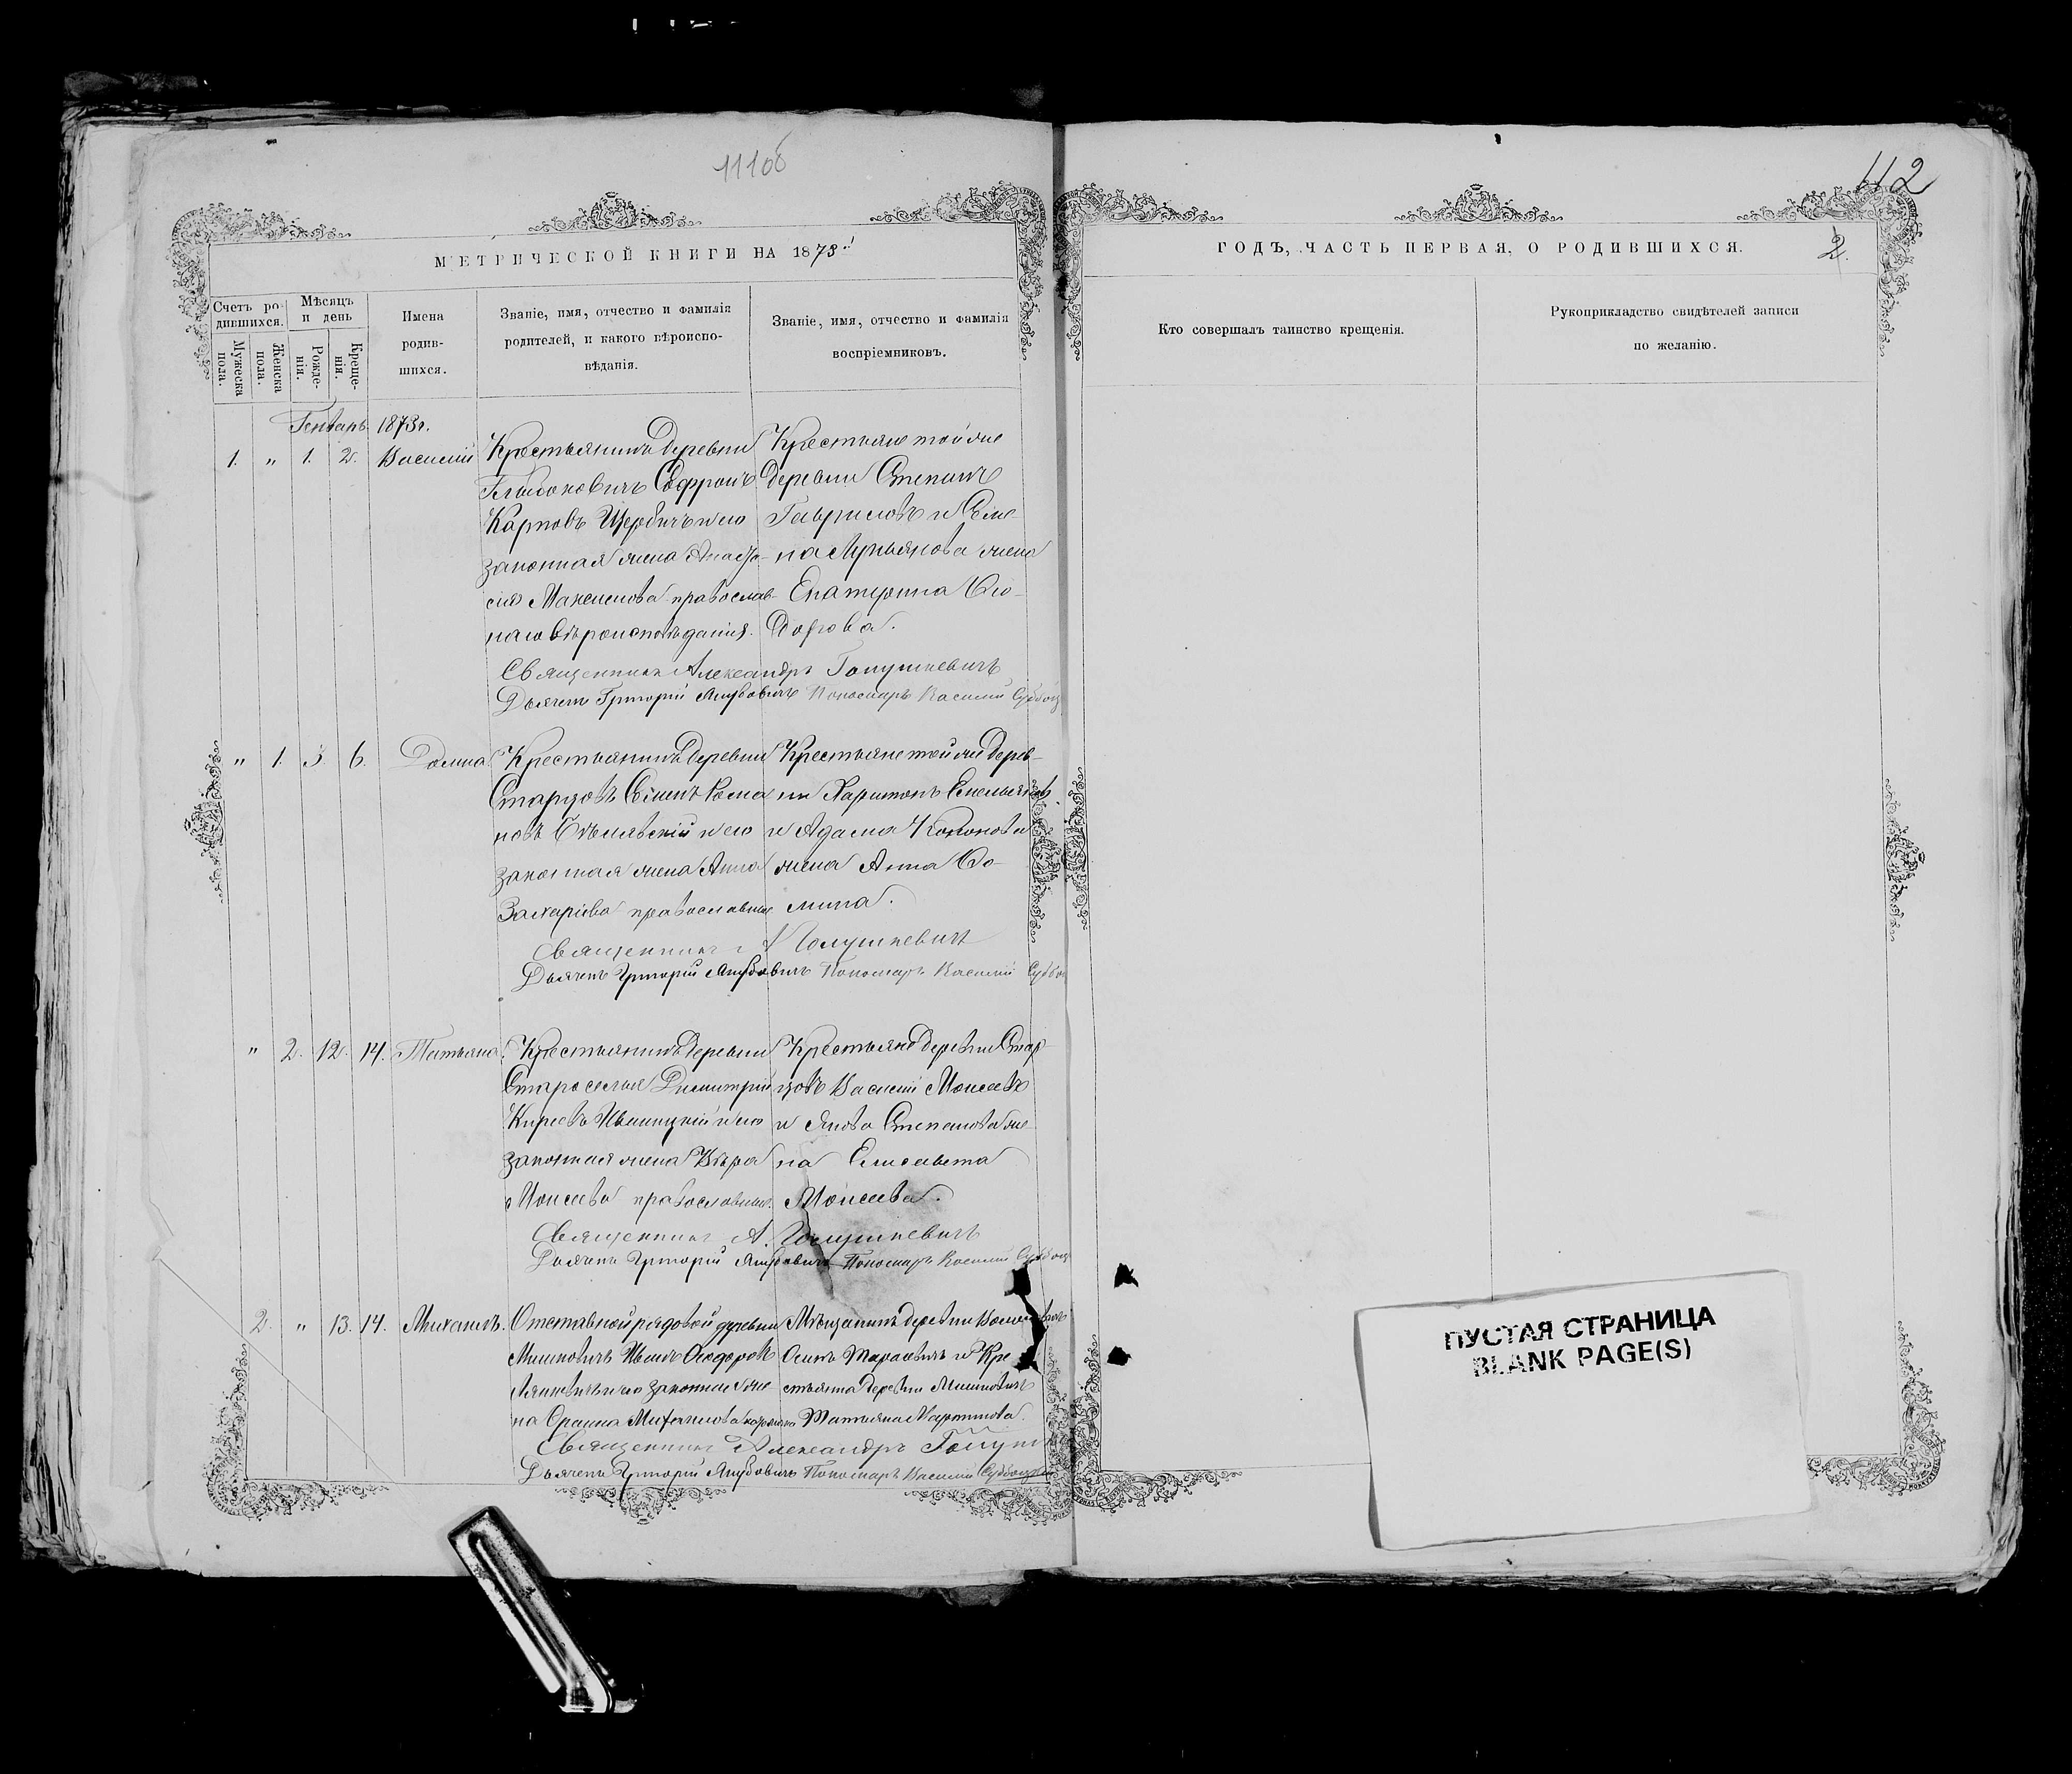 111об
112
МЕТРИЧЕСКОЙ КНИГИ НА 1873й
ГОДЪ, ЧАСТЬ ПЕРВАЯ, О РОДИВШИХСЯ.
2.
Счетъ ро-
дившихся.
Мужеска пола.
Женска пола.
Мѣсяцъ
и день
Рожде-
нія.
Креще-
нія.
Имена
родив-
шихся.
Званіе, имя, отчество и фамилія
родителей, и какого вѣроиспо-
вѣданія.
Званіе, имя, отчество и фамилія
воспріемниковъ.
Кто совершалъ таинство крещенія.
Рукоприкладство свидѣтелей записи
по желанію.
Генварь 1873г.
1. " 1. 2. Василій
Крестьянинъ деревни
Софронъ
Карповъ Щербичъ и его
законная жена Анаста-
сія Максимова православ-
наго вѣроисповѣданія.
Крестьяне той же
деревни Степанъ
Гавриловъ и Семе-
на Лукьянова жена
Екатерина Ѳео-
дорова.
Священникъ Александръ Голушкевичъ
Дьячекъ Григорій Якубовичъ Пономарь Василій
" 1. 3. 6. Домна.
Крестьянинъ деревни
Старцовъ Семенъ Рома-
новъ и его
законная жена Анна
Захаріева православные
Крестьяне той же дерев-
ни Харитонъ Емельяновъ
и Адама Кононова
жена Анна Ѳо-
мина.
Священникъ А Голушкевичъ
Дьячекъ Григорій Якубовичъ Пономарь Василій
" 2. 12. 14. Татьяна.
Крестьянинъ деревни
Староселья Димитрій
Киреевъ и его
законная жена Вѣра
Моисеева православные.
Крестьяне деревни Стар-
цовъ Василій Моисеевъ
и Якова Степанова же-
на Елисавета
Моисеева.
Священникъ А. Голушкевичъ
Дьячекъ Григорій Якубовичъ Пономарь Василій
2. " 13. 14. Михаилъ.
Отставной рядовой деревни
Мишковичъ Иванъ Ѳеодоровъ
и его законная же-
на Михаилова
Мѣщанинъ деревни
Осипъ Тарасевичъ и Кре-
стьянка деревни Мишковичъ
Татьяна Мартинова.
Священникъ Александръ
Дьячекъ Григорій Якубовичъ Пономарь Василій
ПУСТАЯ СТРАНИЦА
BLANK PAGE(S)